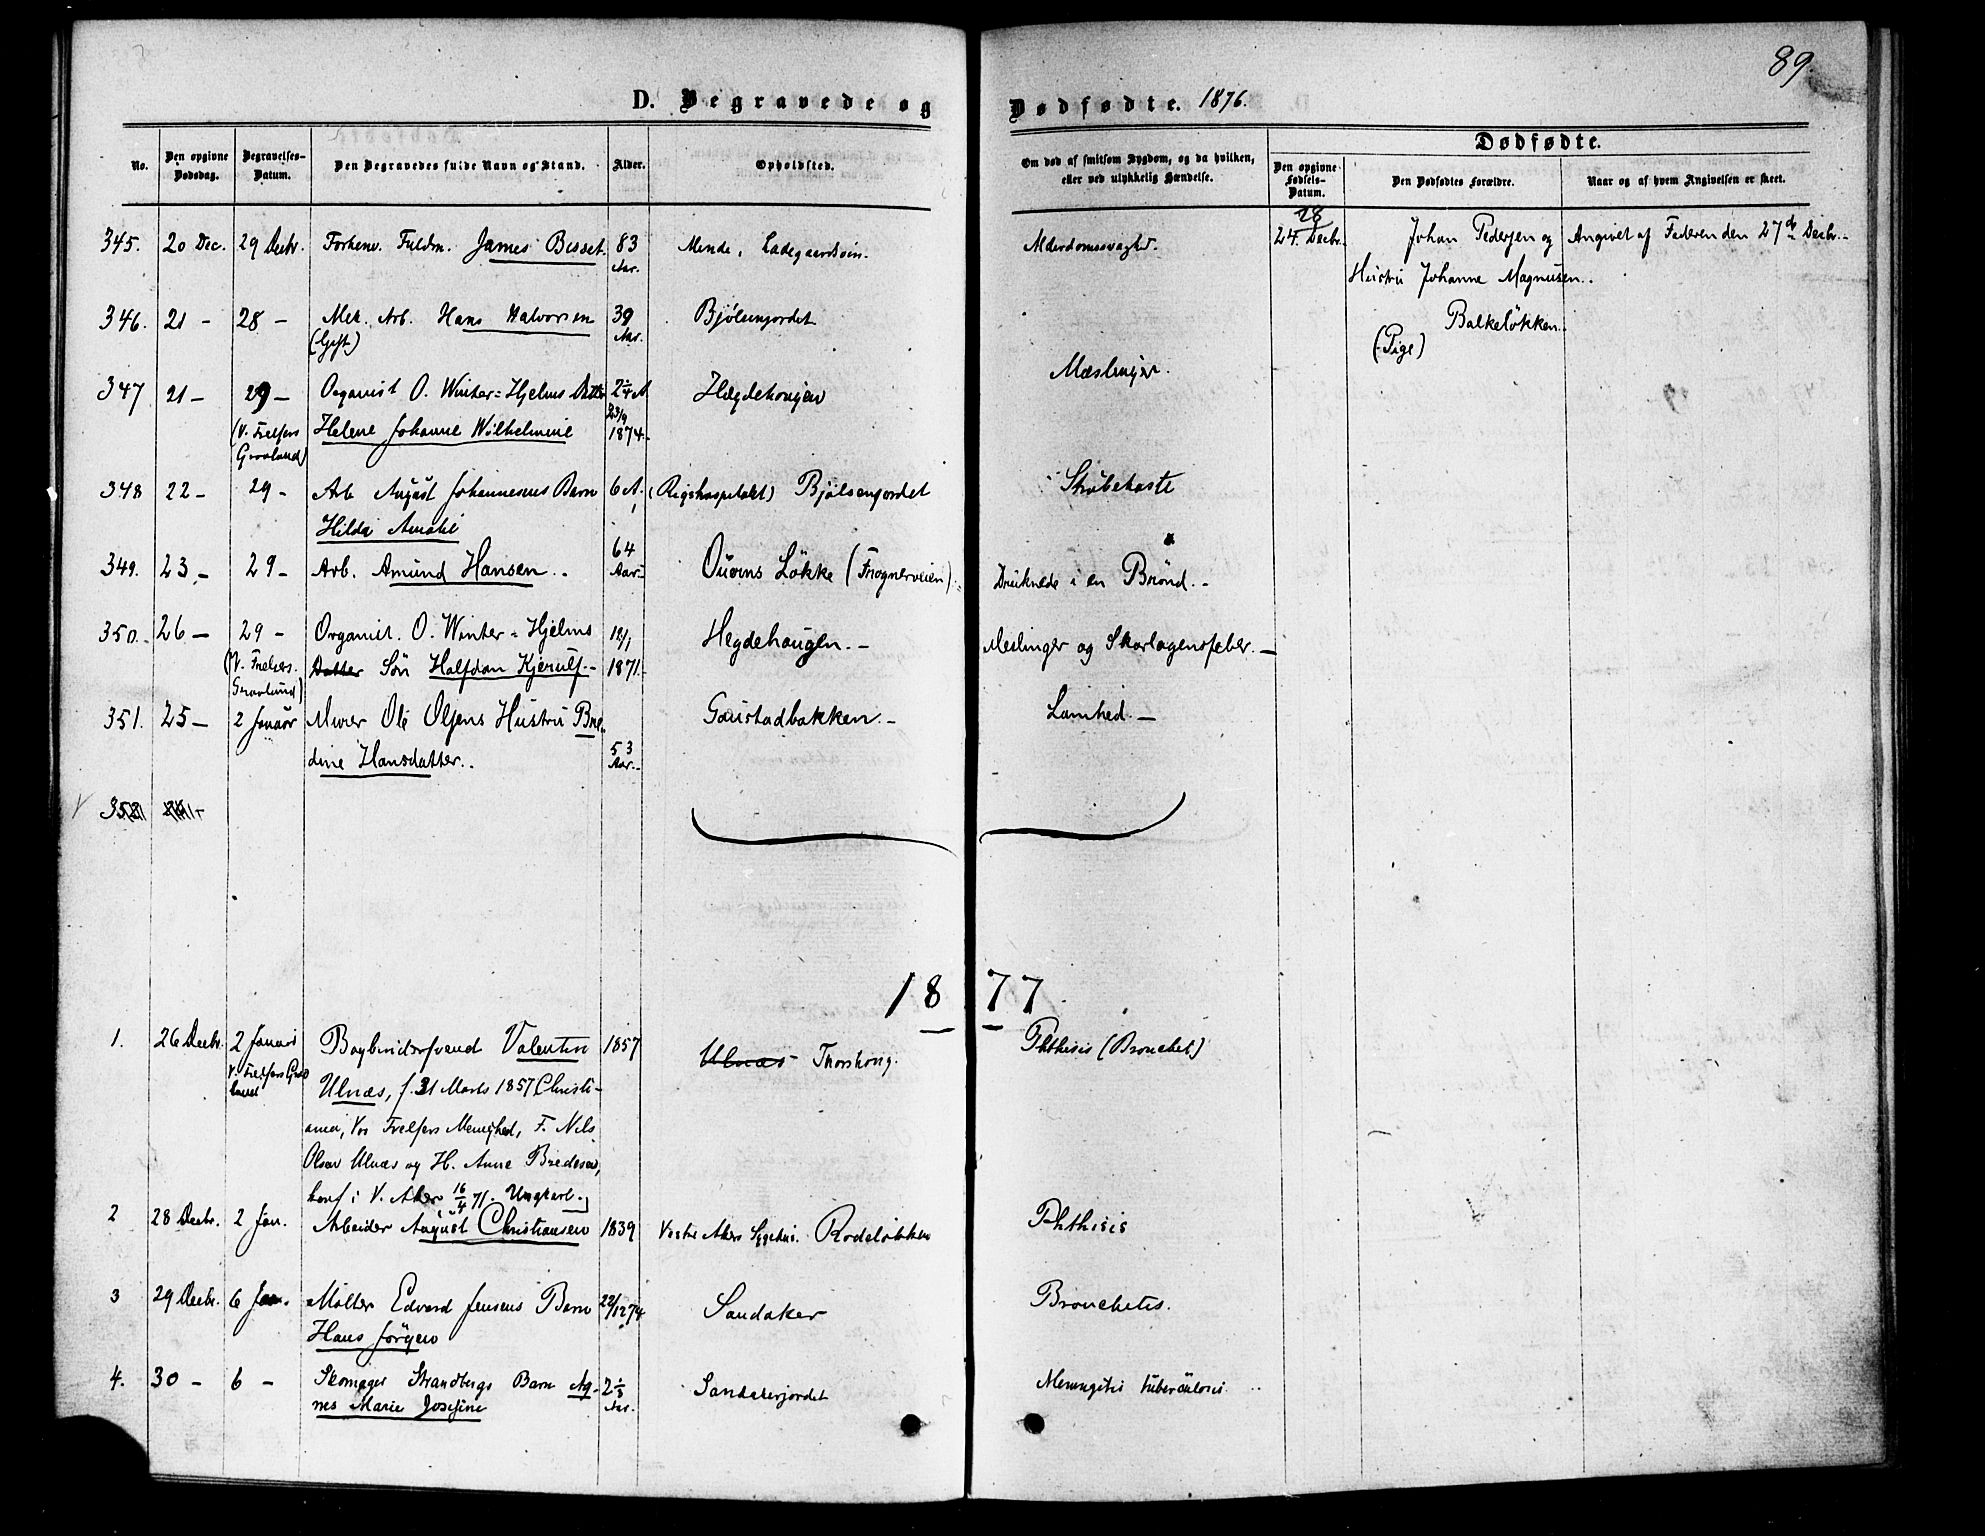 89.
D. Begravede og Dødfødte. 1876.
No.
Den opgivne Dødsdag.
Begravelses-Datum.
Den Begravedes fulde Navn og Stand.
Alder.
Opholdsted.
Om død af smitsom Sygdom, og da hvilken, eller ved ulykkelig Hændelse.
Dødfødte.
Den opgivne Fødsels-Datum.
Den Dødfødtes Forældre.
Naar og af hvem Angivelsen er skeet.
345. 20 Dec. 29 Decbr. Forhenv. Fuldm. James Bisset. 83 Aar. Alderdomssvaghed.
28
24. Decbr. Johan Pedersen og Angivet af Faderen den 27de Decbr.
Hustru Johanne Magnusen..
Balkeløkken.
(Pige)
346. 21 - 28 - Mek. Arb. Hans Halvorsen 39 Aar. Bjølsenjordet
(Gift)
347 21 - 29 - Organist O. Winter=Hjelms Datter 2 1/4 A Hægdehougen Mæslinger.
(V. Frelsers Gravlund) Helene Johanne Wilhelmine 23/9 1874.
348 22 - 29 - Arb August Johannesens Barn 6 A. (Rigshospitalet) Bjølsenjordet Strubehoste
Hilda Amalie
349. 23,- 29 - Arb. Amund Hansen.. 64 Aar. Løkke (Frognerveien) Druknede i en Brønd.-
350.- 26 - 29 - Organist. O. Winter=Hjelms 18/1 Hegdehaugen.- Meslinger og Skarlagensfeber.-
(V. Frelsers. Gravlund) Datter Søn Halfdan Kjerulf.- 1871.
351. 25 - 2 Januar Murer Ole Olsens Hustru Bre- Gaustadbakken.- Lamhed.-
dine Hansdatter.. 53 Aar.
352
1877
1. 26 Decbr. 2 Januar Bogbindersvend Valentin 1857 Ulnæs Thorshoug. Phthisis (Bronchit.)
V. Frelsers Gravlund Ulnæs, f. 31 Marts 1857 Christi-
ania, Vor Frelsers Menighed, F. Nils
Olsen Ulnæs og H. Anne Bredesen,
konf i V. Aker 16/4 71. Ungkarl.
2 28 Decbr. 2 Jan. Arbeider August Christiansen 1839 Vestre Akers Sygehus. Rodeløkken Phthisis
3 29 Decbr. 6 Jan. Møller Edvard Jensens Barn 22/12 74 Sandaker Bronchitis.
Hans Jørgen
4. 30 - 6 - Skomager Strandbergs Barn Ag- 2 1/3 Aar. Sandakerjordet Meningitis tuberculosis.
nes Marie Josefine